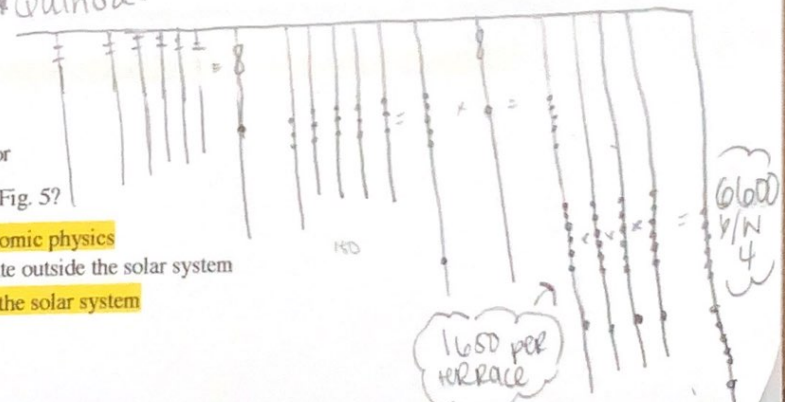 or
Fig. 5?
omic physics
te outside the solar system
the solar system
1650 per
terrace
6600
4